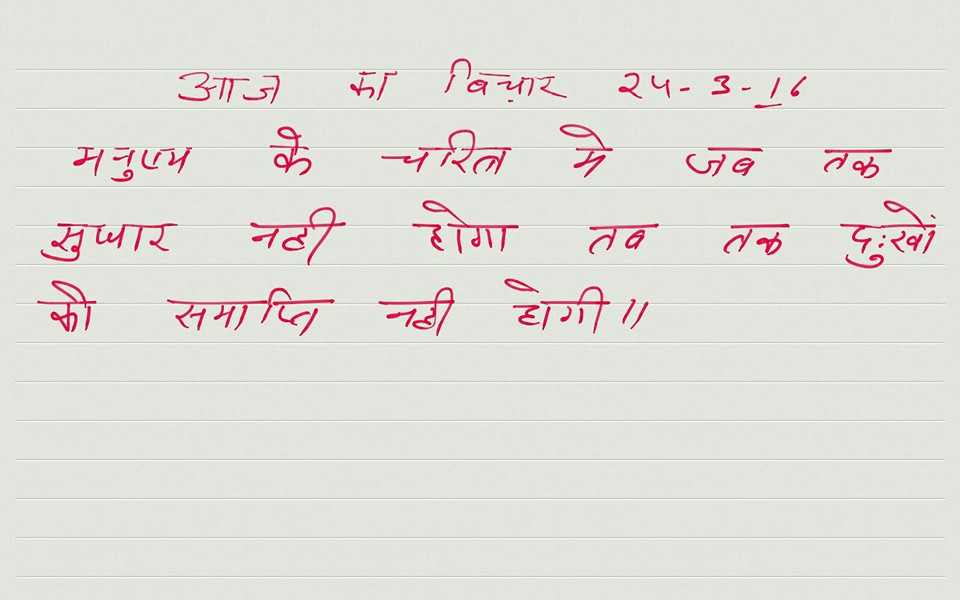 आज का विचार २५-३-16
मनुष्य के चरित्र मे जब तक
सुधार नही होगा तब तक दुःखों
की समाप्ति नही होगी॥